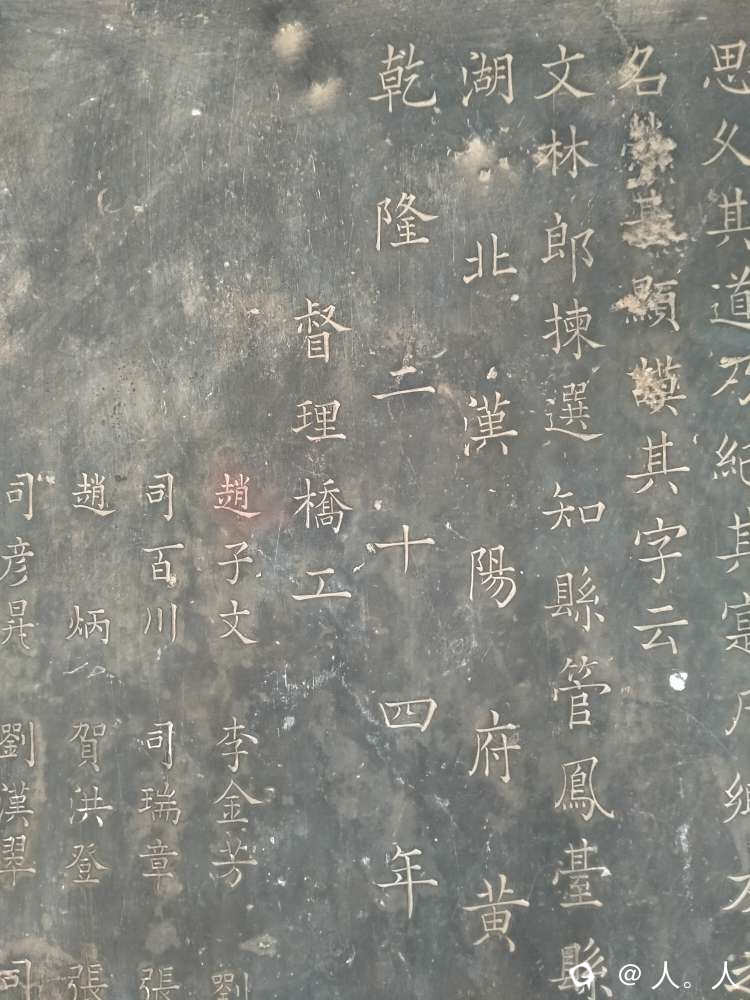 思久其道乃紀其寔凡鄉
名其顯謨其字云
文林郎揀選知縣管鳳臺縣
湖北漢陽府黄
乾隆二十四年
督理橋工
趙子文 李金芳 劉
司百川 司瑞章 張
趙炳 賀洪登 張
司彦晁 劉漢翠 司
@人。人